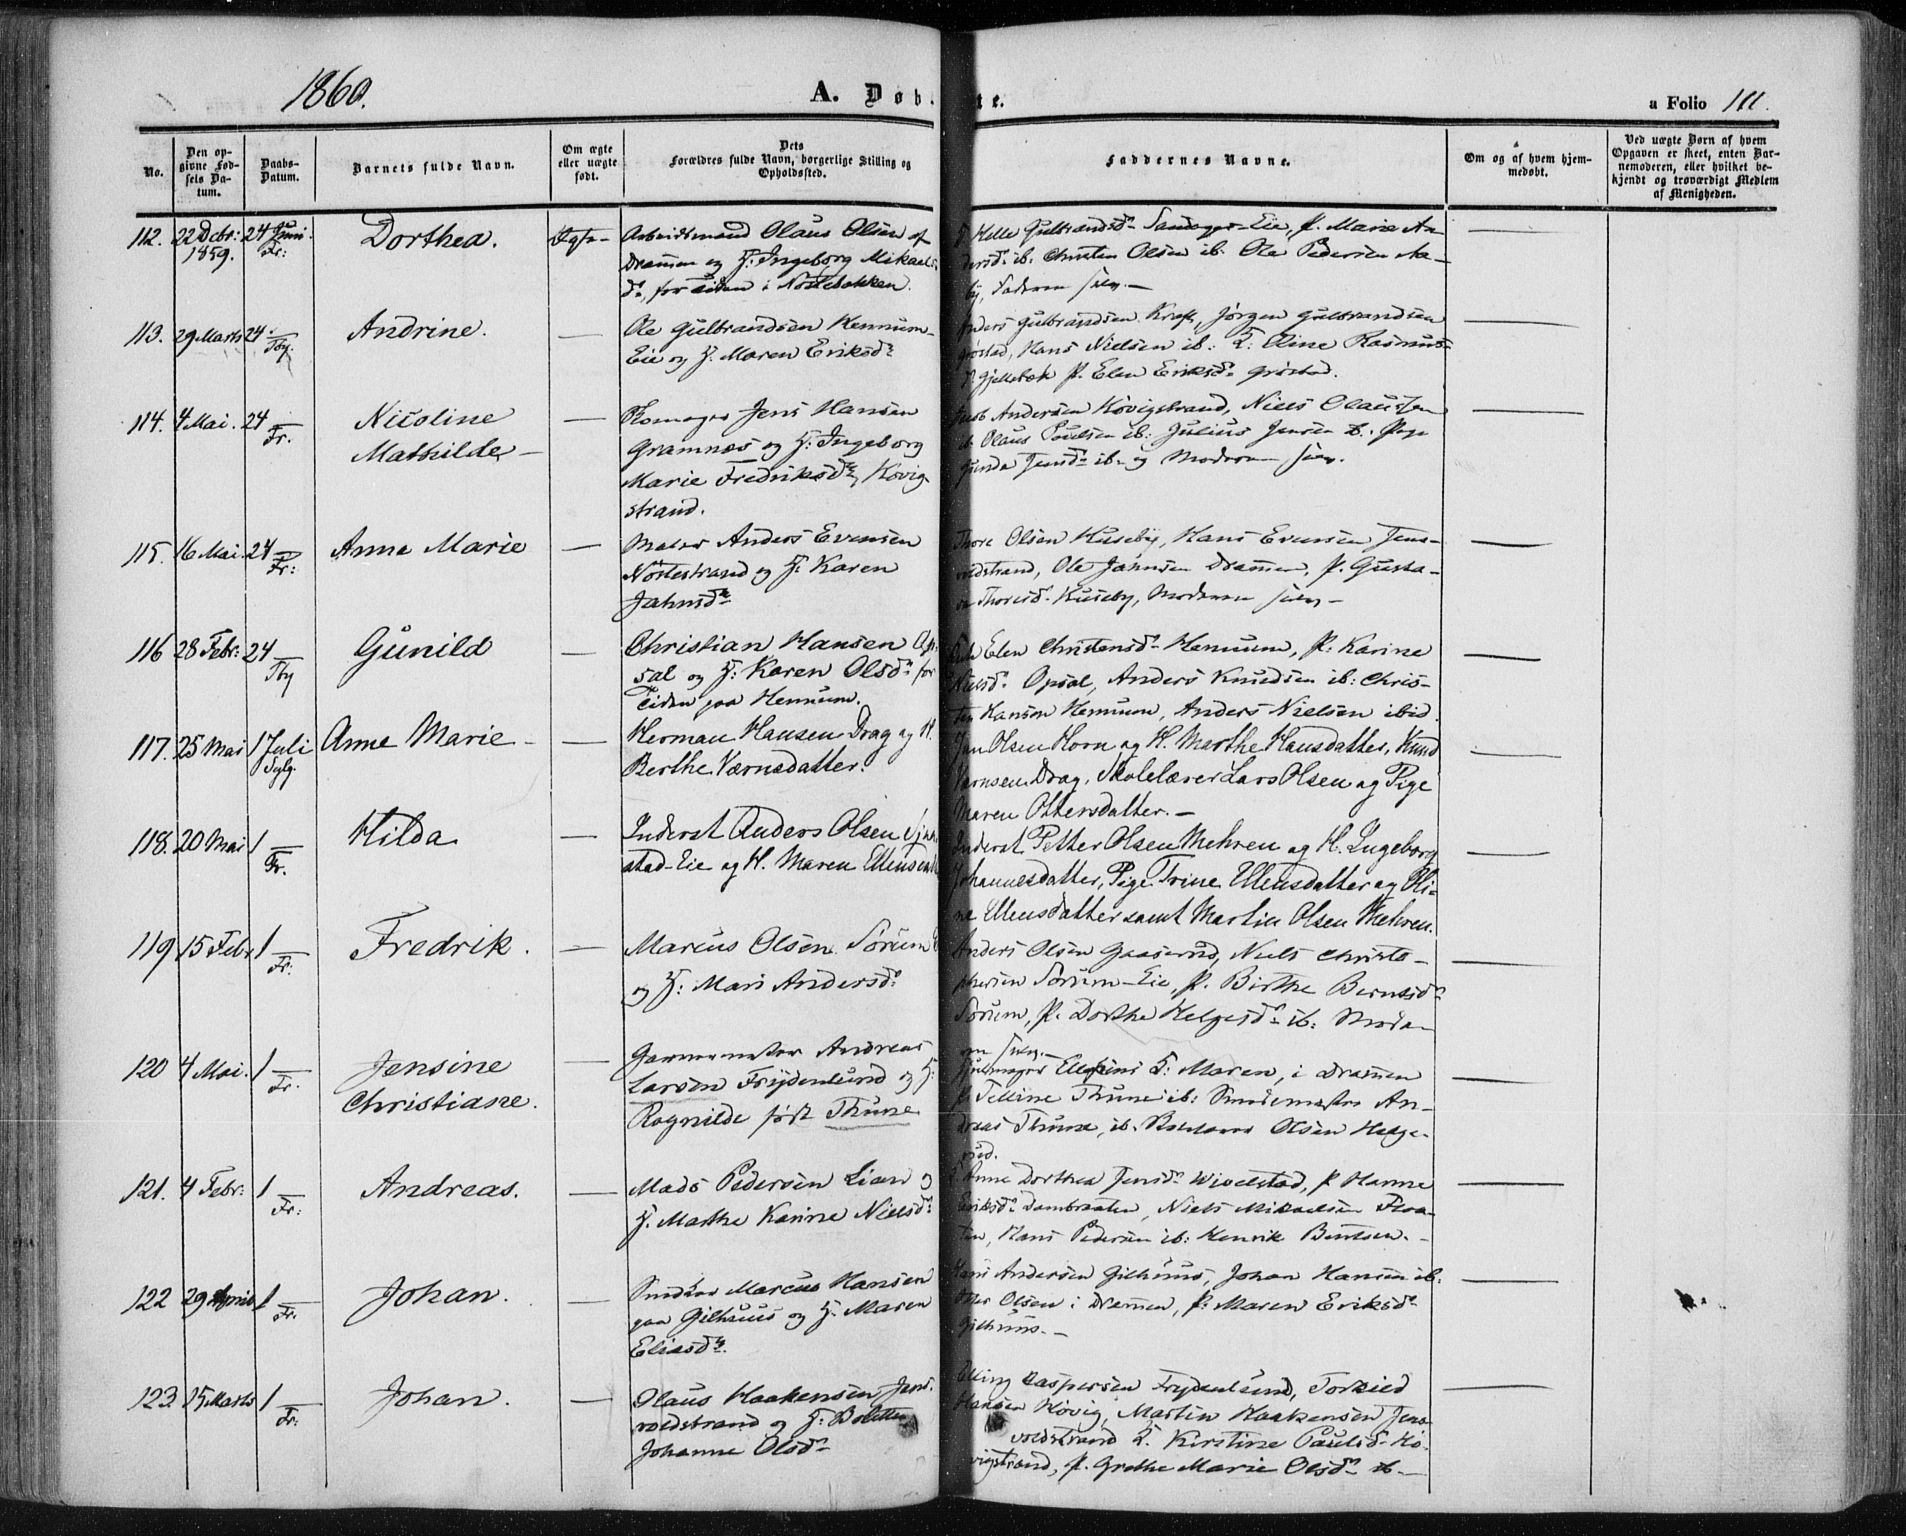 1860.
A. Døb.
te.
a Folio 111.
No.
Den op-
givne Fød-
sels Da-
tum.
Daabs-
Datum.
Barnets fulde Navn.
Om ægte
eller uægte
født.
Dets
Forældres fulde Navn, borgerlige Stilling og
Opholdssted.
Faddernes Navne.
Om og af hvem hjem-
medøbt.
Ved uægte Børn af hvem
Opgaven er skeet, enten Bar-
nemoderen, eller hvilket be-
kjendt og troværdigt Medlem
af Menigheden.
112. 22 Dcbr: 1859. 24 Juni. Fr: Dorthea. Ægte-
Arbeidsmand Olaus Olsen af
Drammen og H: Ingeborg Mikaels
dr, for Tiden i Nøstebakken.
Helle Gulbrandsdr Eie, P. Marie An-
dersdr ib. Christen Olsen ib. Ole Pedersen Aa-
by, Faderen selv.-
113. 29 Marts 24 Tby. Andrine. —
Ole Gulbrandsen Hennum-
Eie og H. Maren Eriksdr
Anders Gulbrandsen Kraft, Jørgen Gulbrandsen
Grøstad, Hans Nielsen ib: K: Eline Rasmus-
dr Gjellebek P. Elen Eriksdr Grøstad.
114. 4 Mai. 24 Fr. Nicoline
Mathilde, —
Jens Hansen
Gramnæs og H: Ingeborg
Marie Fredriksdr, Høvig-
strand.
Jacob Andersen Høvigstrand, Niels Olaussen
ib. Olaus Poulsen ib: Julius Jensen ib. Pige
Gunda Jensdr ib. og Moderen selv.
115. 16 Mai. 24 Fr: Anna Marie —
Maler Anders Evensen
Nøstestrand og H: Karen
Jahnsdr
Thore Olsen Huseby, Hans Evensen Jens-
voldstrand, Ole Jahnsen Drammen, P. Gusta-
va Thoresdr Huseby, Moderen selv-
116 28 Febr: 24 Tby Gunild —
Christian Hansen Op-
sal og H: Karen Olsdr for
Tiden paa Hennum.
Elen Christensdr Hennum, P. Karine
Nielsdr Opsal, Anders Knudsen ib: Chris-
ten Hansen Hennum, Anders Nielsen ibid.
117. 25 Mai 1 Juli Sylg. Anne Marie — —
Herman Hansen Drag og H.
Berthe Værnsdatter.
Jan Olsen Horn og H. Marthe Hansdatter, Knud
Værnsen Drag, Skolelærer Lars Olsen og Pige
Maren Ottersdatter.—
118. 20 Mai 1 Fr. Hilda —
Inderst Anders Olsen
stad-Eie og H. Maren Ellensdatter
Inderst Petter Olsen Mehren og H. Ingeborg
Johannesdatter, Pige Trine Ellensdatter og Oli-
ne Ellensdatter samt Martin Olsen Mehren.
119 15 Febr 1 Fr: Fredrik. —
Marcus Olsen Sørum
og H: Mari Andersdr
Anders Olsen Gaaserud, Niels Christo-
phersen Sørum-Eie, P. Birthe Berntsdr
Sørum, P. Dorthe Helgesdr ib: Moder-
en selv.—
120 4 Mai. 1 Fr. Jensine
Christiane. —
Garvermester Andreas
Larsen Frydenlund og H:
Ragnilde født Thune
K: Maren, i Drammen
P. Telline Thune ib: Smedemester An-
dreas Thune, ib. Olsen Helge-
rud.
121. 4 Febr: 1 Fr: Andreas. —
Mads Pedersen Lian og
H. Marthe Karine Nielsdr
K. Anne Dorthea Jensdr Wivelstad, P Hanne
Eriksdr Dambraaten, Niels Mikaelsen Flaa-
ten, Hans Pedersen ib: Henrik Berntsen.—
122 29 April 1 Fr. Johan. —
Snedker Marcus Hansen
paa Gilhuus og H. Maren
Eliasdr
Hans Andersen Gilhuus, Johan Hansen ib.
Olsen i Drammen, P: Maren Eriksdr
Gilhuus.—
123. 15 Marts 1 Fr: Johan. —
Olaus Haakensen Jens-
voldstrand og H: Bolette
Johanne Olsdr
Elling Caspersen Frydenlund, Torkild
Hansen Høvig, Martin Haakensen Jens-
voldstrand K. Kirstine Paulsdr Hø-
vigstrand, P. Grethe Marie Olsdr ib—